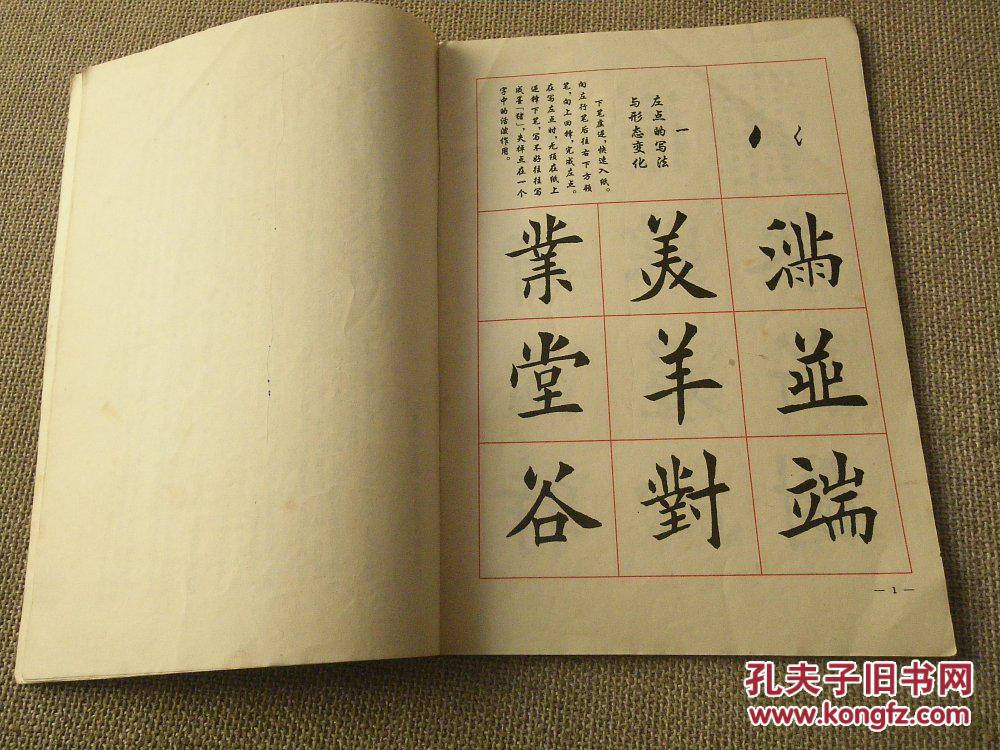 一
左点的写法
与形态变化
下笔虚逆，快速入纸。
向左行笔后往右下方顿
笔，向上回锋，完成左点。
在写左点时，无须在纸上
逆锋下笔，写不好往往写
成墨「猪」，失掉点在一个
字中的活泼作用。
满 並 端
美 羊 對
業 堂 谷
— 1 —
孔夫子旧书网
www.kongfz.com